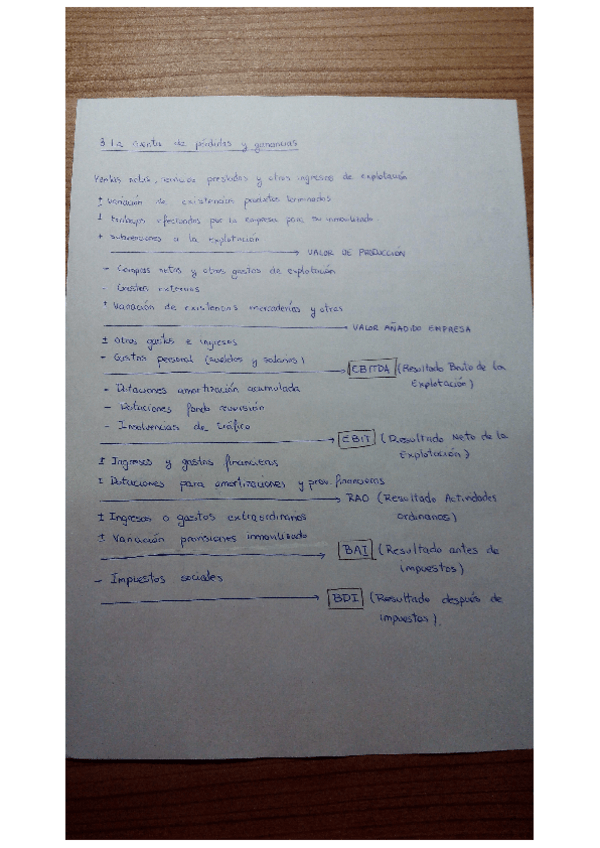 3. La cuenta de pérdidas y ganancias
Ventas netas, servicios prestados y otros ingresos de explotación
± Variación de existencias productos terminados
± trabajos efectuados por la empresa para su inmovilizado.
+ subvenciones a la explotación
VALOR DE PRODUCCIÓN
- Compras netas y otros gastos de explotación
- Gastos externos
± Variación de existencias mercaderías y otras
VALOR AÑADIDO EMPRESA
± Otros gastos e ingresos
- Gastos personal (sueldos y salarios)
EBITDA (Resultado Bruto de la
Explotación)
- Dotaciones amortización acumulada
- Dotaciones fondo reversión
- Insolvencias de tráfico
EBIT (Resultado Neto de la
Explotación)
± Ingresos y gastos financieros
± Dotaciones para amortizaciones y prov. financieras
RAO (Resultado Actividades
Ordinarias)
± Ingresos o gastos extraordinarios
± Variación provisiones inmovilizado
BAI (Resultado antes de
impuestos)
- Impuestos sociales
BDI (Resultado después de
impuestos).